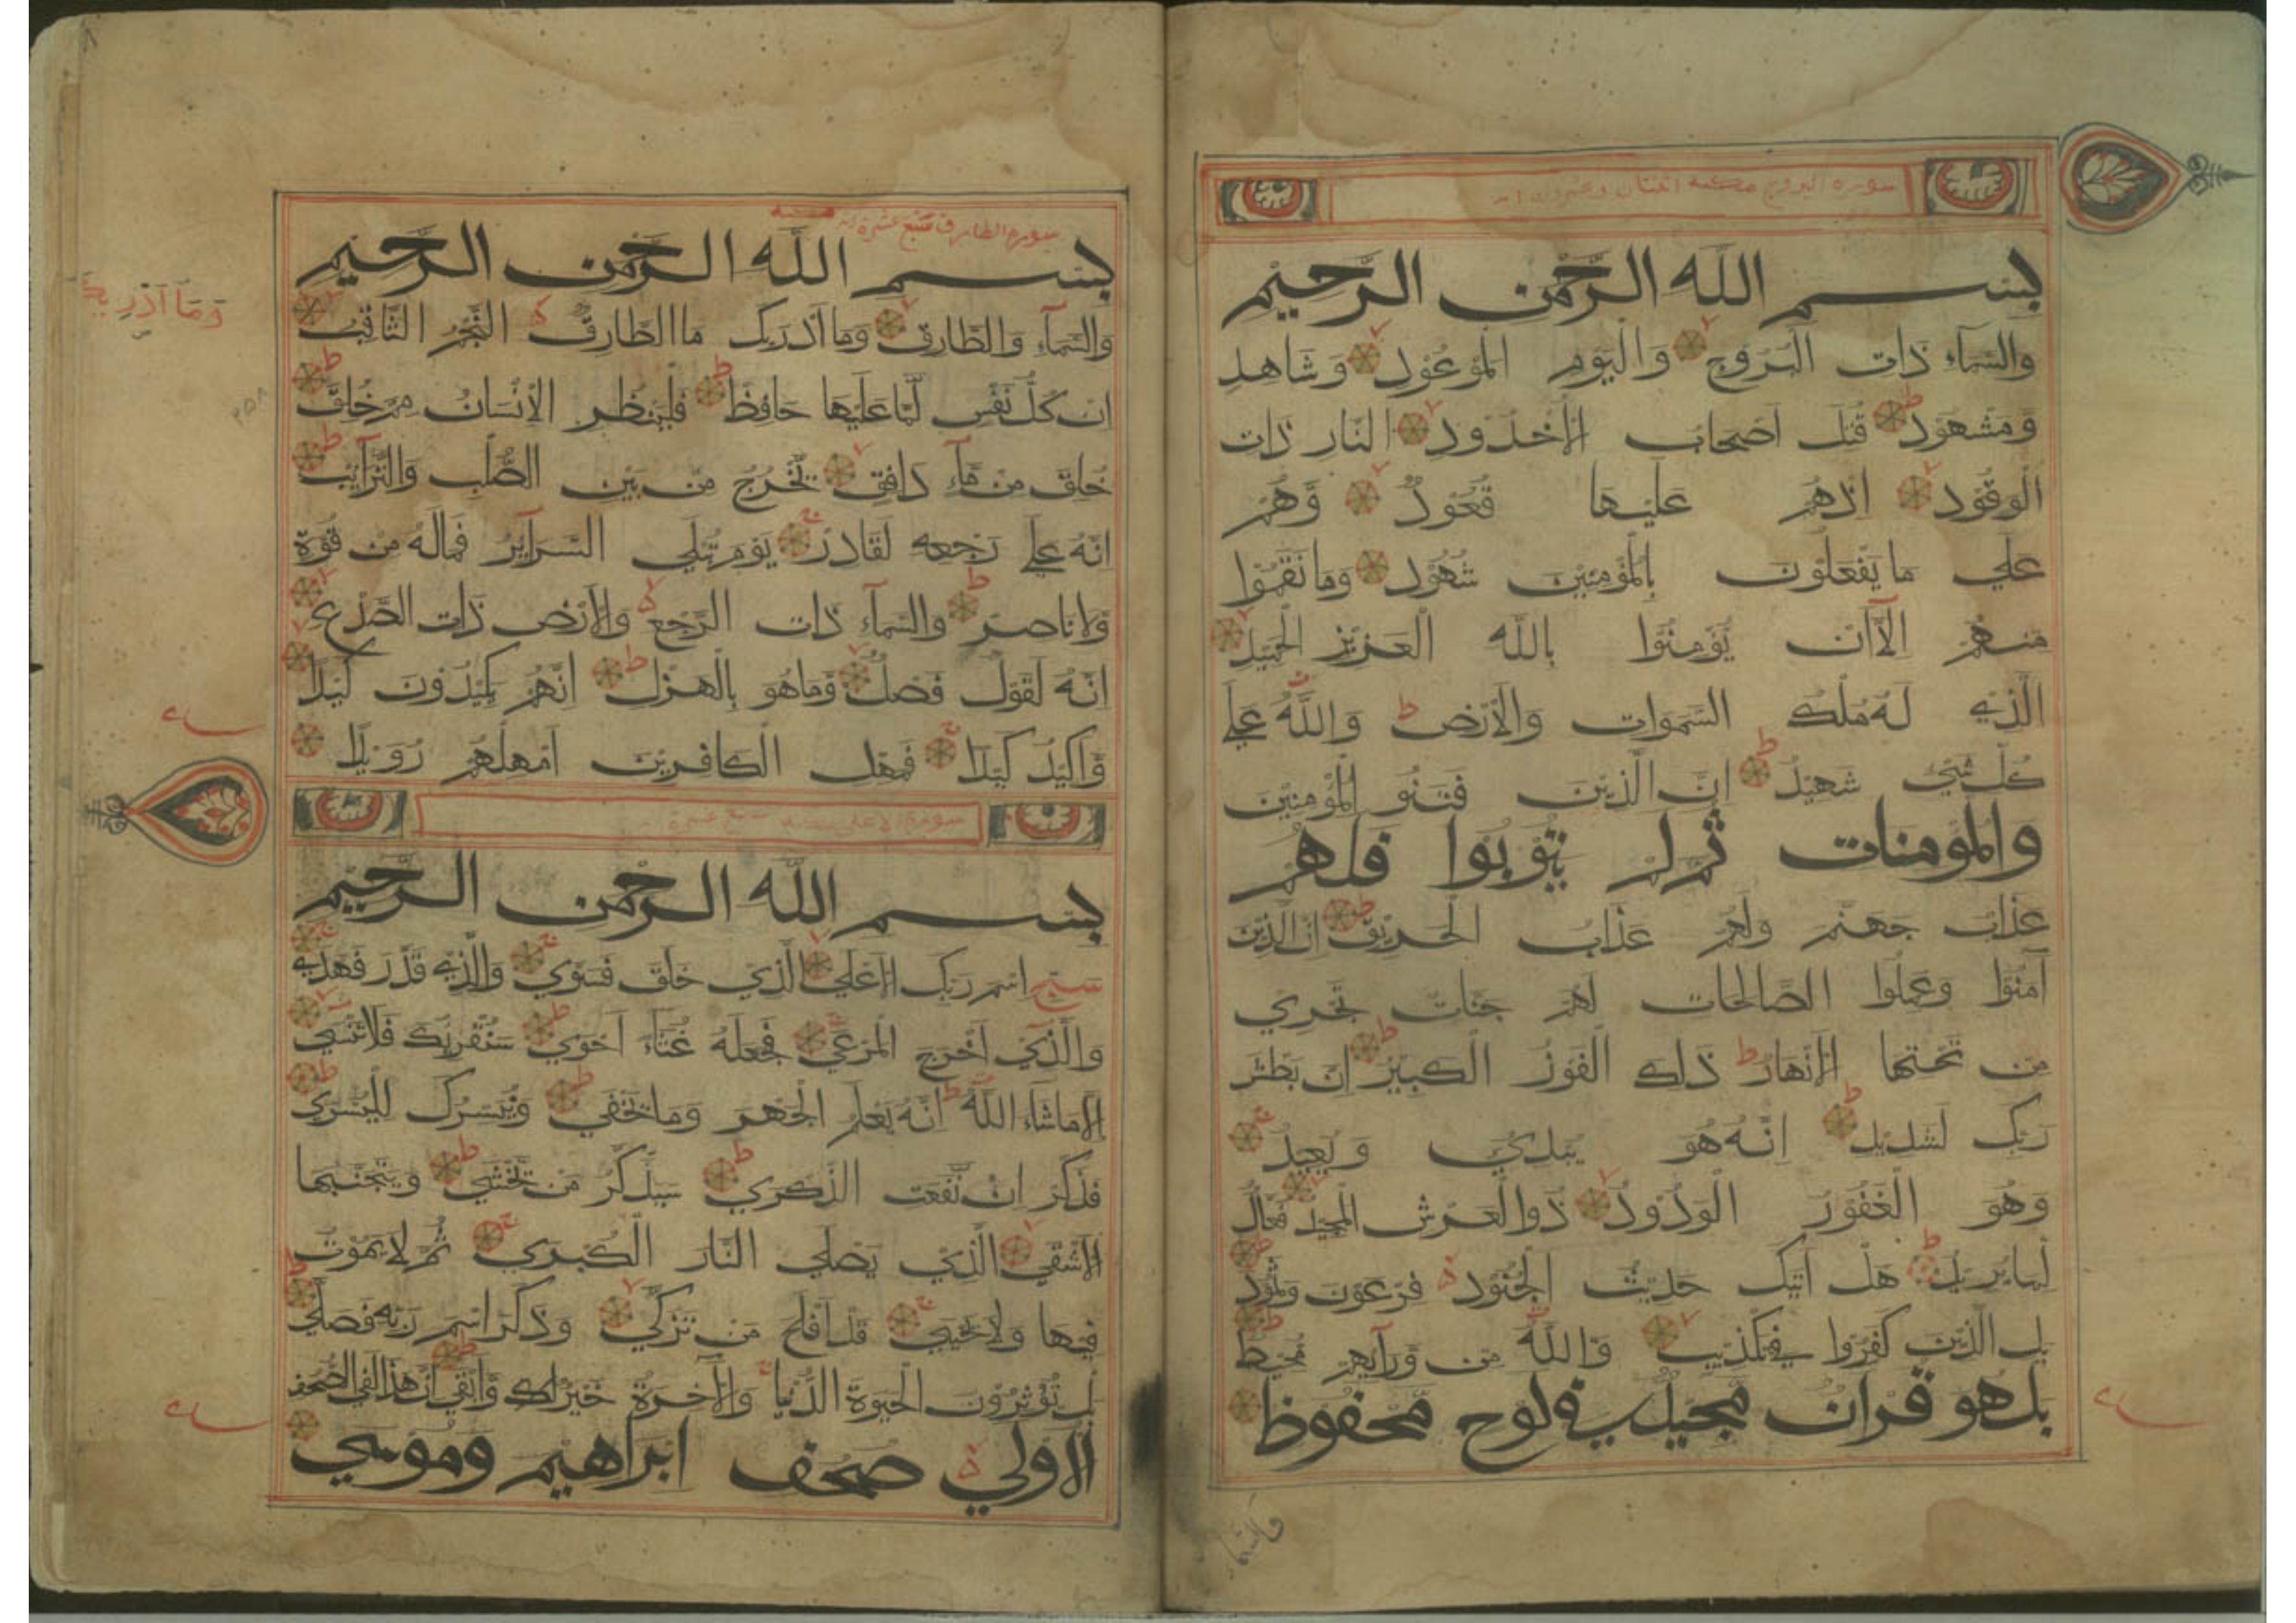 سورة البروج مكية اثنتان وعشرون اية
بسم الله الرحمن الرحيم
والسماء ذات البروج واليوم الموعود وشاهد
ومشهود قتل اصحاب الاخدود النار ذات
الوقود اذهم عليها قعود وهم
علي ما يفعلون بالمومنين شهود وما نقموا
منهم الا ان يومنوا بالله العزيز الحميد
الذي له ملك السموات والارض والله علي
كل شيء شهيد ان الذين فتنو المومنين
والمومنات ثم لم يتوبوا فلهم
عذاب جهنم ولهم عذاب الحريق ان الذين
آمنوا وعملوا الصالحات لهم جنات تجري
من تحتها الانهار ذلك الفوز الكبير ان بطش
ربك لشديد انه هو يبدي ويعيد
وهو الغفور الودود ذوالعرش المجيد فعال
لما يريد هل اتيك حديث الجنود فرعون وثمود
بل الذين كفروا في تكذيب والله من ورآيهم محيط
بل هو قران مجيد في لوح محفوظ
والسماء
سورة الطارق سبع عشرة اية مكية
بسم الله الرحمن الرحيم
والسمآء والطارق وما ادريك ما الطارق النجم الثاقب
ان كل نفس لما عليها حافظ فلينظر الانسان مم خلق
خلق من مآء دافق يخرج من بين الصلب والترآيب
انه علي رجعه لقادر يوم تبلي السرآير فماله من قوة
ولا ناصر والسمآء ذات الرجع والارض ذات الصدع
انه لقول فصل وما هو بالهزل انهم يكيدون كيدا
واكيد كيدا فمهل الكافرين امهلهم رويدا
وما ادريك
سورة الاعلي مكية تسع عشرة اية
بسم الله الرحمن الرحيم
سبح اسم ربك الاعلي الذي خلق فسوي والذي قدر فهدي
والذي اخرج المرعي فجعله غثاء احوي سنقريك فلا تنسي
الا ما شآء الله انه يعلم الجهر وما يخفي ونيسرك لليسري
فذكر ان نفعت الذكري سيذكر من يخشي ويتجنبها
الاشقي الذي يصلي النار الكبري ثم لا يموت
فيها ولا يحيي قد افلح من تزكي وذكر اسم ربه فصلي
بل توثرون الحيوة الدنيا والآخرة خير لك وابقي ان هذا لفي الصحف
الاولي صحف ابراهيم وموسي